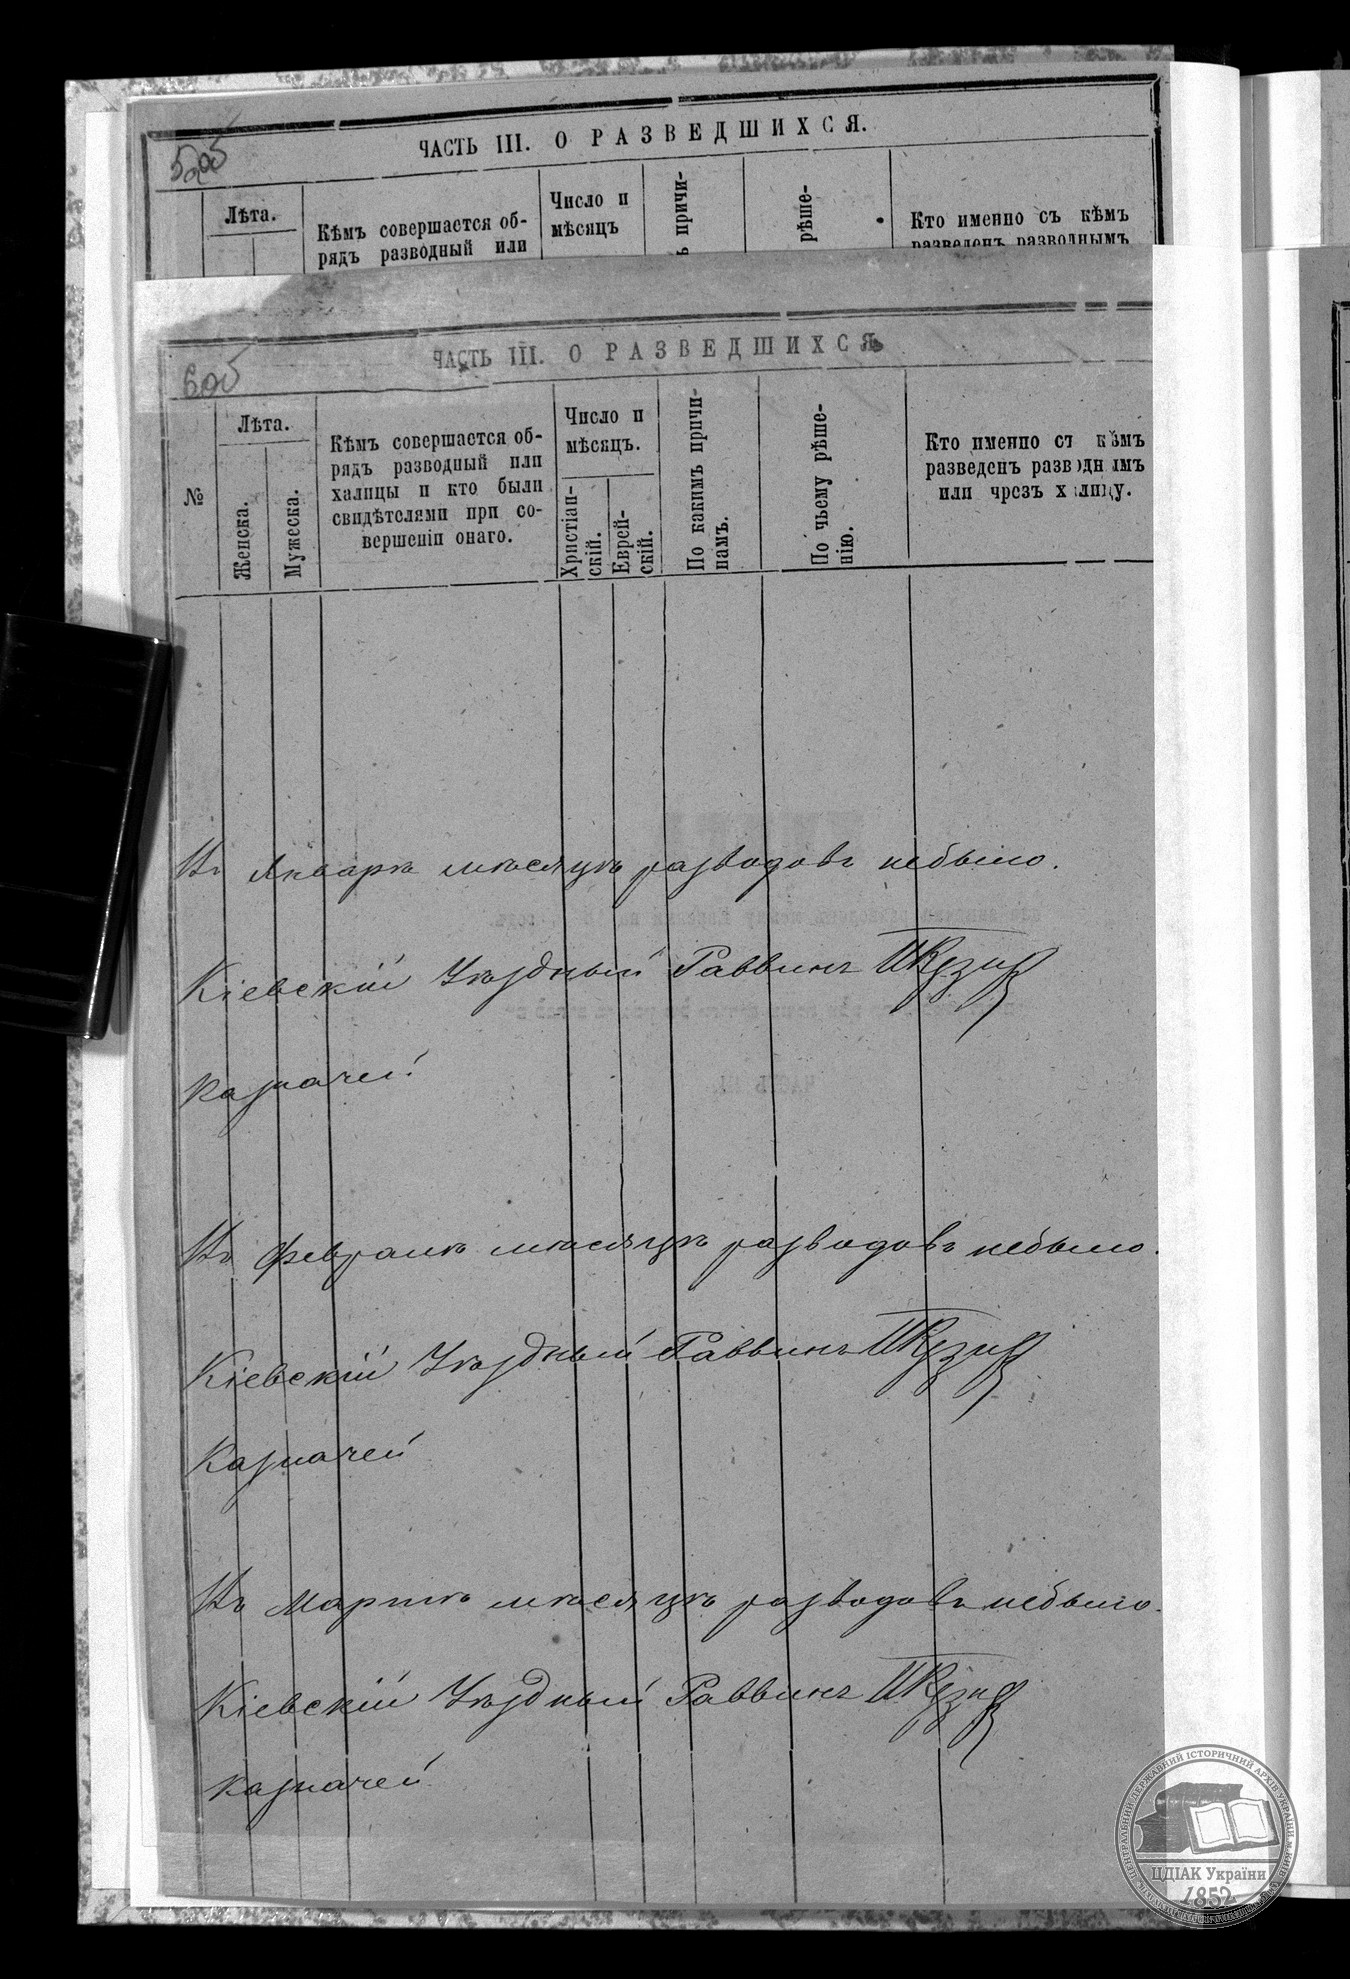 5об
ЧАСТЬ III. О РАЗВЕДШИХСЯ.
Лѣта.
Кѣмъ совершается об-
рядъ разводный или
Число и
мѣсяцъ
ъ причи-
рѣше-
Кто именно съ кѣмъ
разведенъ разводнымъ
6об
ЧАСТЬ III. О РАЗВЕДШИХСЯ
№
Лѣта.
Женска.
Мужеска.
Кѣмъ совершается об-
рядъ разводный или
халицы и кто были
свидѣтелями при со-
вершеніи онаго.
Число и
мѣсяцъ.
Христіан-
скій.
Еврей-
скій.
По какимъ причи-
намъ.
По чьему рѣше-
нію.
Кто именно съ кѣмъ
разведенъ разводнымъ
или чрезъ халицу.
Въ Январѣ мѣсяцѣ разводовъ небыло.
Кіевскій Уѣздный Раввинъ
Казначей
Въ Февралѣ мѣсяцѣ разводовъ небыло.
Кіевскій Уѣздный Раввинъ
Казначей
Въ Мартѣ мѣсяцѣ разводовъ небыло.
Кіевскій Уѣздный Раввинъ
Казначей
ЦЕНТРАЛЬНИЙ ДЕРЖАВНИЙ ІСТОРИЧНИЙ АРХІВ УКРАЇНИ, м.КИЇВ
ЦДІАК України
1852